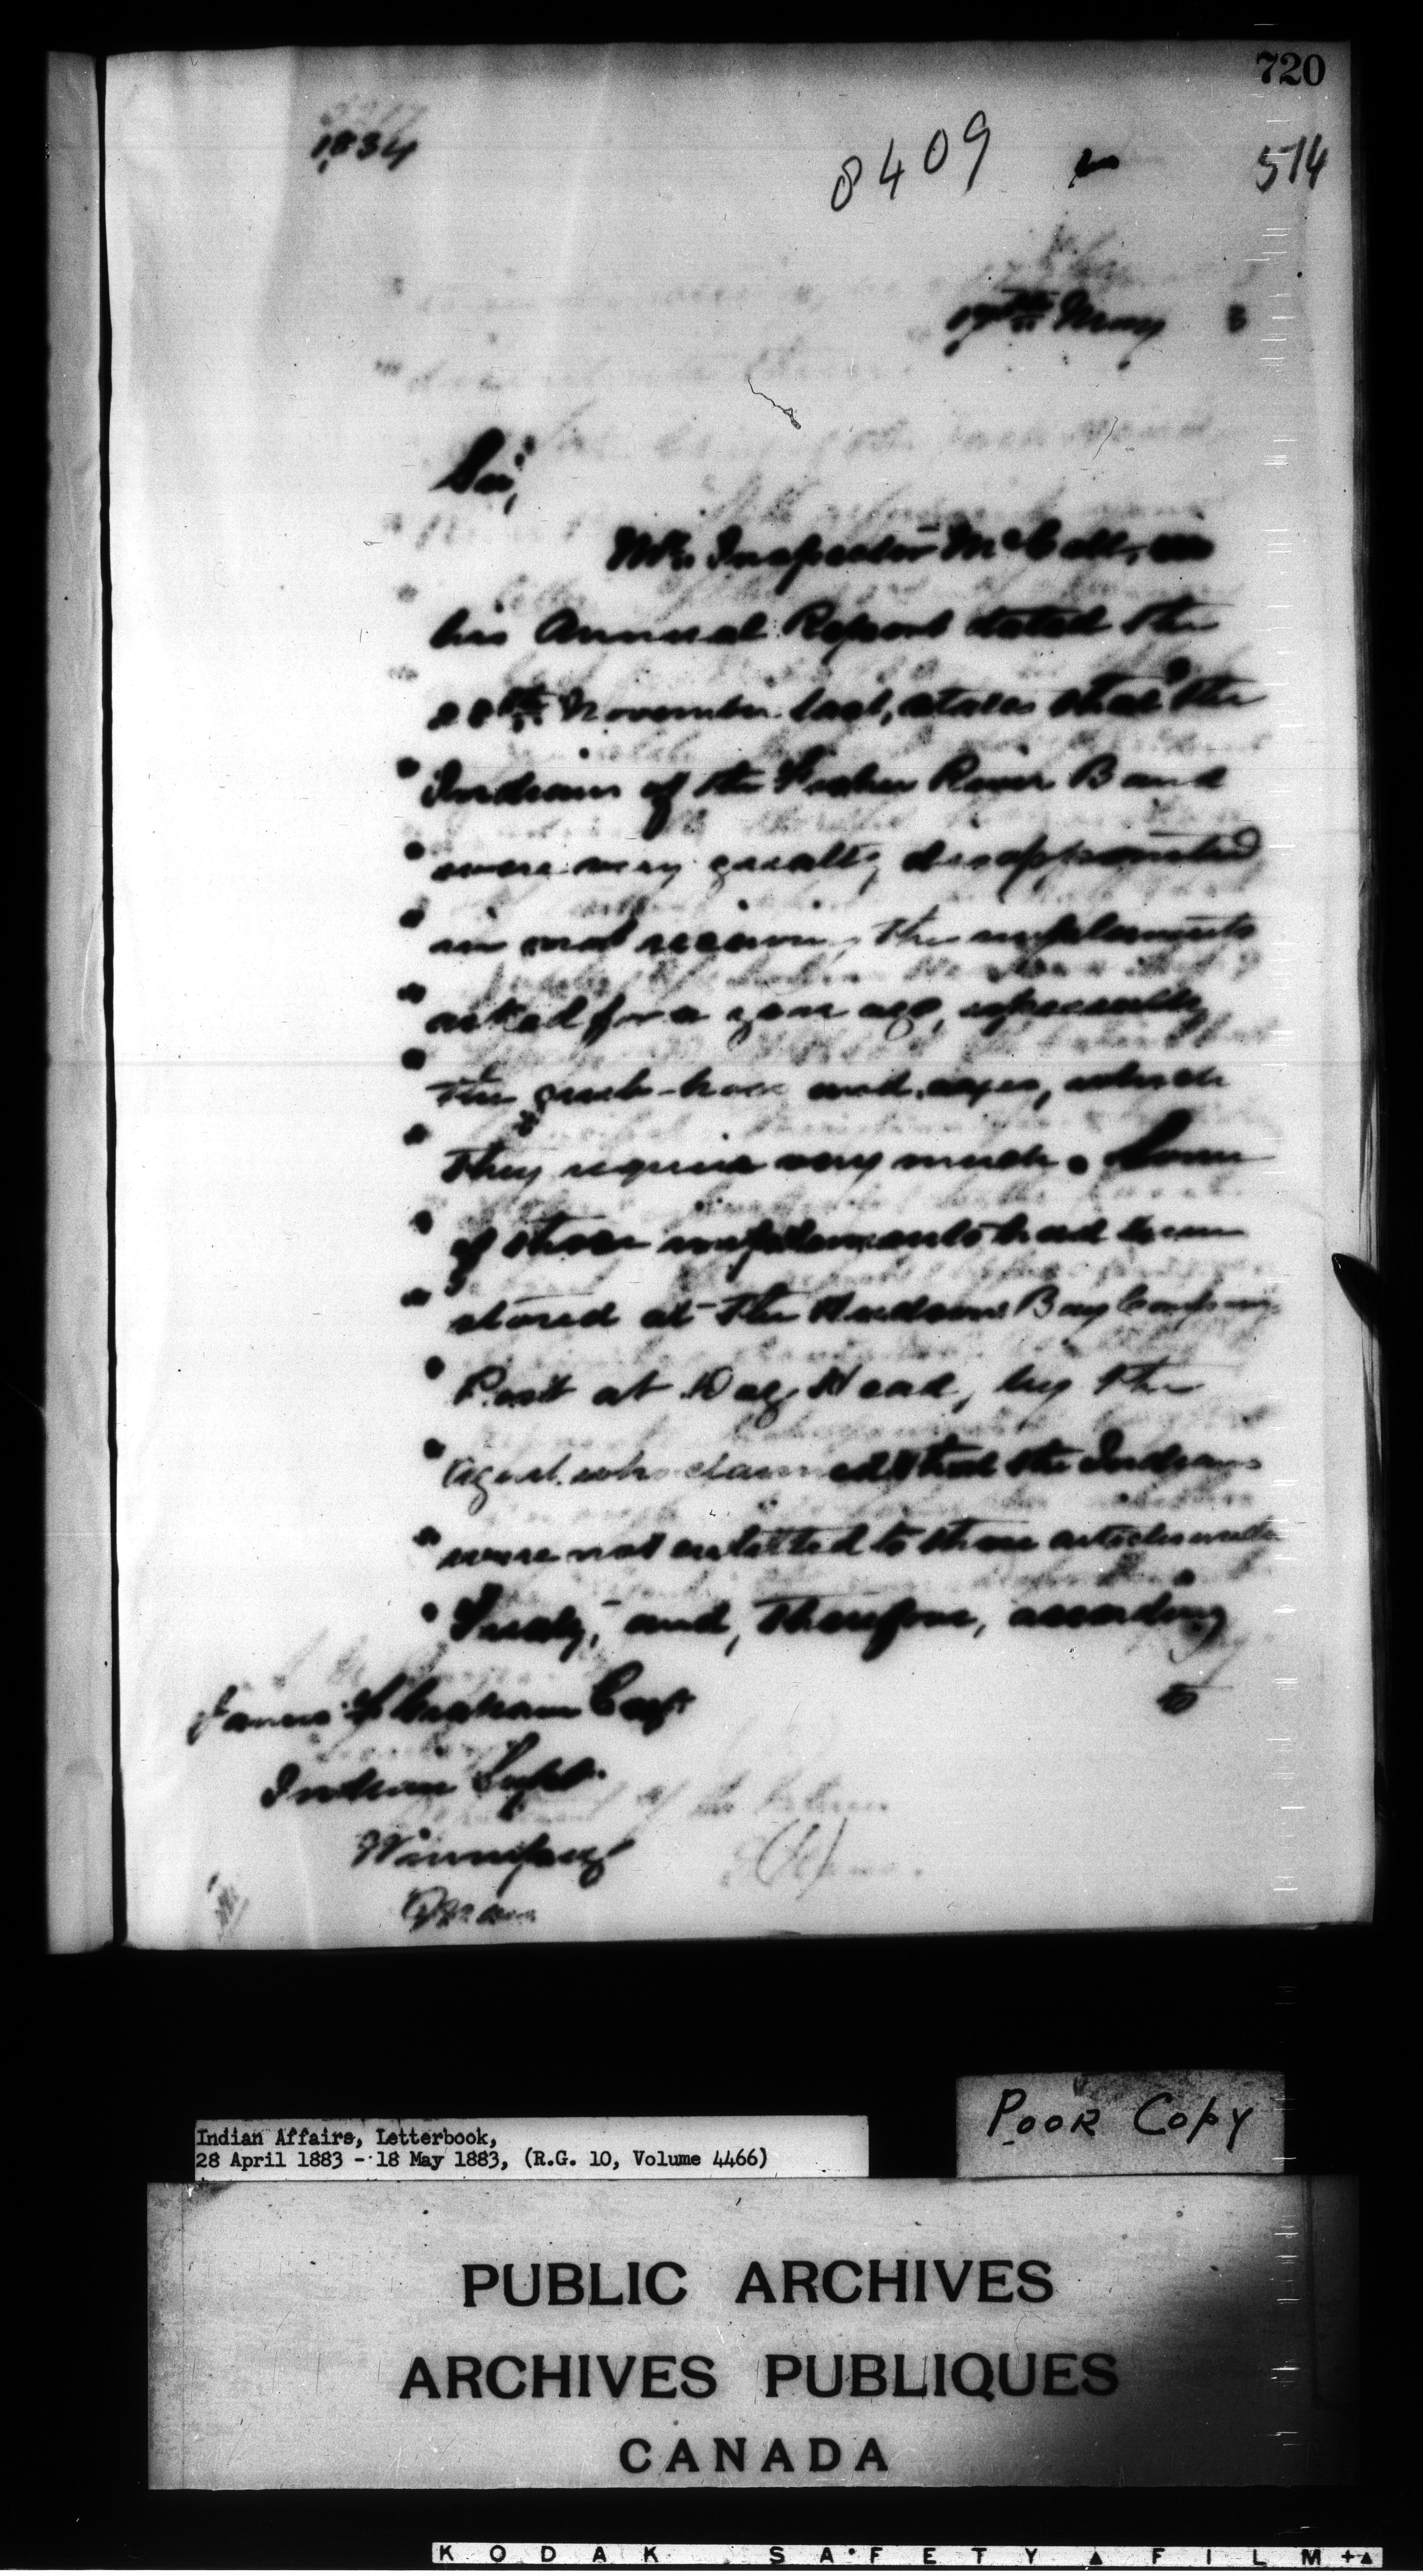 720
1834
8409
514
17th May 3
Sir,
Mr. Inspector McColl, in
his Annual Report dated the
28th November last, states that "the
"Indians of the Fisher River Band
"were very greatly disappointed
"in not receiving the implements
"asked for a year ago, especially
"the grub-hoes and axes, which
"they require very much. Some
"of these implements had been
"stored at the Hudson Bay Company
"Post at Dog Head, by the
"Agent who claimed that the Indians
"were not entitled to those articles under
"Treaty," and, therefore, according
to
James F Graham Esqr
Indian Supt.
Winnipeg
Indian Affairs, Letterbook,
28 April 1883 - 18 May 1883, (R.G. 10, Volume 4466)
POOR COPY
PUBLIC ARCHIVES
ARCHIVES PUBLIQUES
CANADA
KODAK SAFETY FILM